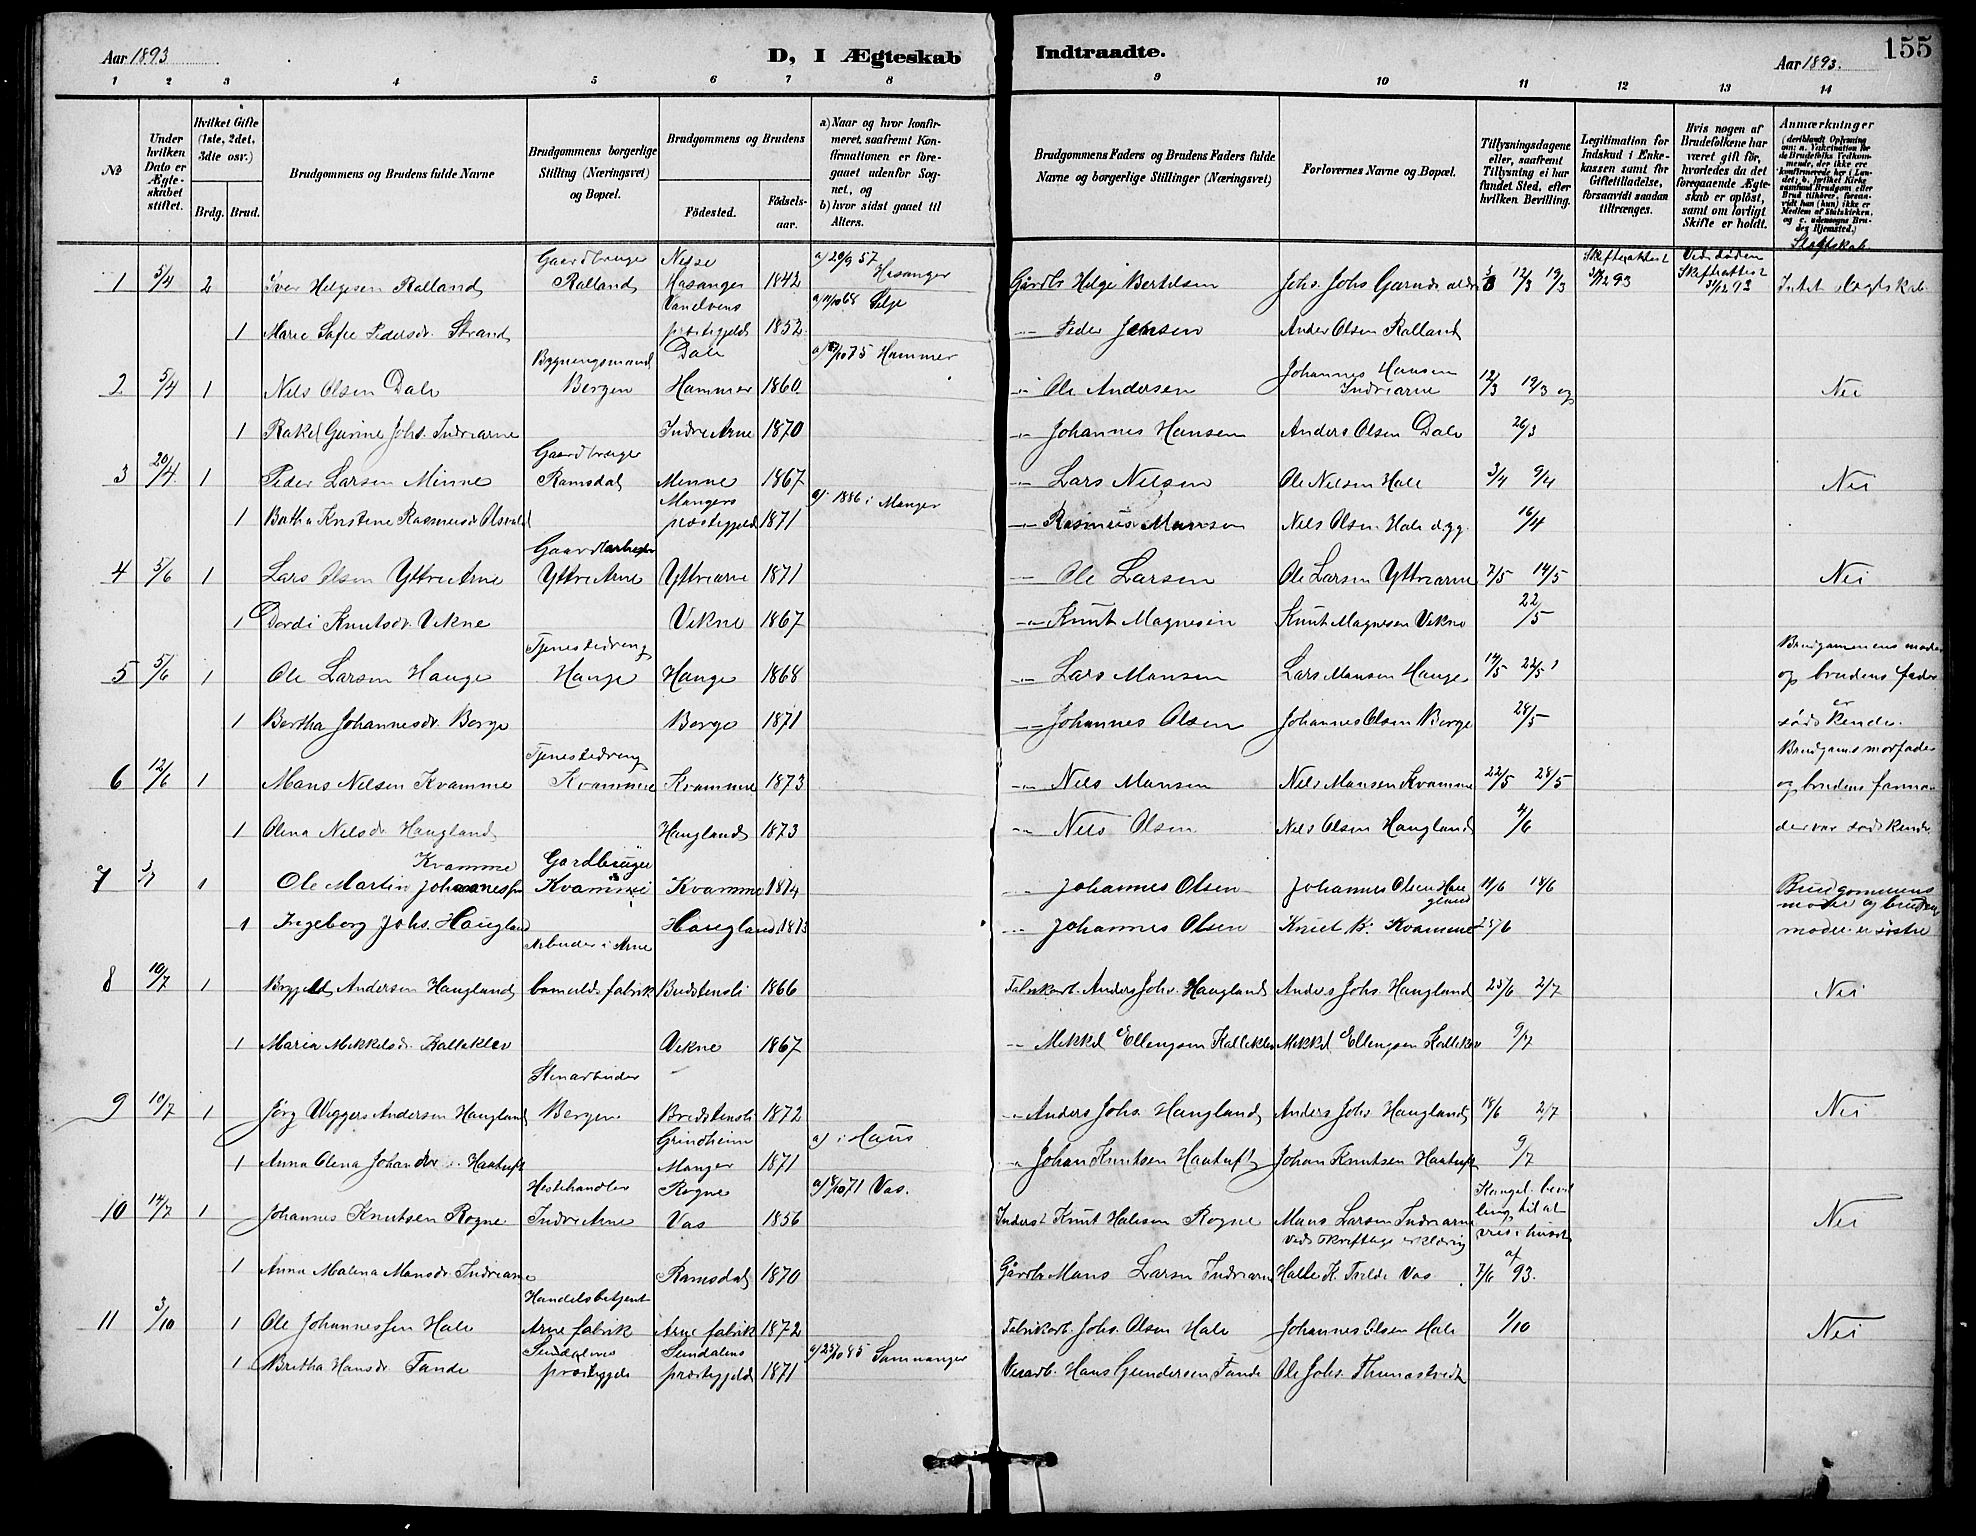 Aar 1893 D, I Ægteskab Indtraadte. Aar 1893. 155
1 2 3 4 5 6 7 8 9 10 11 12 13 14
No
Under hvilken Dato er Ægteskabet stiftet.
Hvilket Gifte (1ste, 2det, 3dte osv.)
Brdg. Brud.
Brudgommens og Brudens fulde Navne
Brudgommens borgerlige Stilling (Næringsvei) og Bopæl.
Brudgommens og Brudens
Fødested. Fødselsaar.
a) Naar og hvor konfirmeret, saafremt Konfirmationen er foregaaet udenfor Sognet, og
b) hvor sidst gaaet til Alters.
Brudgommens Faders og Brudens Faders fulde Navne og borgerlige Stillinger (Næringsvei)
Forlovernes Navne og Bopæl.
Tillysningsdagene eller, saafremt Tillysning ei har fundet Sted, efter hvilken Bevilling.
Legitimation for Indskud i Enkekassen samt for Giftetilladelse, forsaavidt saadan tiltrænges.
Hvis nogen af Brudefolkene har været gift før, hvorledes da det foregaaende Ægteskab er opløst, samt om lovligt Skifte er holdt.
Anmærkninger (deriblandt Oplysning om: a. Vakcination for de Brudefolks Vedkommende, der ikke ere konfirmerede her i Landet; b. hvilket Kirkesamfund Brudgom eller Brud tilhører, forsaavidt han (hun) ikke er Medlem af Statskirken, og c. udensogns Brudes Hjemsted.)
Slegtskab
1 5/4 2 Iver Helgesen Ralland Gaardbruger Ralland Nesse Hasanger 1842 a) 20/9 57 Hosanger Gårdbr Helge Bertelsen Johs. Johs Garnes 12/3 19/3 Skifteattest 31/12 93 Ved døden Skifteattest 31/12 93 Intet slegtskab
1 Marie Sofie Pedersdr. Strand Vanelvens prestegjeld 1852 Selje Peder Jensen Anders Olsen Ralland
2 5/4 1 Nils Olsen Dale Bygningsmand Bergen Dale Hammer 1860 75 Hammer Ole Andersen Johannes Hansen Indrearne 12/3 19/3 og Nei
1 Rakel Gurine Johs. Indrearne Indre Arne 1870 Johannes Hansen Anders Olsen Dale 26/3
3 20/4 1 Peder Larsen Minne Gaardbruger Ramsdal Minne 1867 Lars Nilsen Ole Nilsen Hale 3/4 9/4 Nei
1 Bertha Kristine Rasmusdr. Mangers prestegjeld 1871 a) 1886 i Manger Rasmus Monson Nils Olsen Hale 16/4
4 5/6 1 Lars Olsen Yttre Arne Gaardarbeider Yttre Arne Yttrearne 1871 Ole Larsen Ole Larsen Yttrearne 7/5 14/5 Nei
1 Dordi Knutsdr. Vekne Vekne 1867 Knut Magnesen Knut Magnesen Vekne 22/5
5 5/6 1 Ole Larsen Hauge Tjenestedreng Hauge Hauge 1868 Lars Monsen Lars Monsen Hauge 14/5 22/5 Brudgommens moder og brudens fader
1 Bertha Johannesdr. Borge Borge 1871 Johannes Olsen Johannes Olsen Borge 28/5 er sødskende.
6 12/6 1 Mons Nilsen Kvamme Tjenestedreng Kvamme Kvamme 1873 Nils Monsen Nils Monsen Kvamme 22/5 28/5 Brudgoms morfader og brudens farmo-
1 Olena Nilsdr. Haugland Haugland 1873 Nils Olsen Nils Olsen Haugland 4/6 der var sødskende.
7 3/7 1 Ole Martin Johannessen Kvamme Gardbruger Kvamme Kvamme 1874 Johannes Olsen Johannes Olsen Haugland 11/6 18/6 Brudgommens moder og brudens moder er søstre
1 Ingeborg Johs. Haugland Haugland 1873 Johannes Olsen Knut K. Kvamme 25/6
8 10/7 1 Brygeld Andersen Haugland Arbeider i Arne bomulds fabrik Bredstensli 1866 Fabrikarb. Anders Johs. Haugland Anders Johs. Haugland 25/6 2/7 Nei
1 Maria Mikkelsdr. Kalleklev Vekne 1867 Mikkel Ellengsen Kalleklev Mikkel Ellengsen Kalleklev 9/7
9 10/7 1 Jørg Wiggers Andersen Haugland Stenarbeider Bergen Bredstensli 1872 Anders Johs. Haugland Anders Johs Haugland 18/6 2/7 Nei
1 Anna Olena Johansdr. Haatuft Grindheim Manger 1871 a) i Haus Johan Knutsen Haatuft Johan Knutsen Haatuft 9/7
10 14/7 1 Johannes Knutsen Rogne Hestehandler Indre Arne Rogne Vos 1856 71 Vos. Inderst Knut Halesen Rogne Mons Larsen Indrearne ved skriftlig erklæring Kongel. bevilling til at vies i huset Nei
1 Anna Malena Monsdr. Indrearne Ramsdal 1870 Gårdbr Mons Larsen Indrearne Halle K. Tvilde Vos af 7/6 93.
11 3/10 1 Ole Johannessen Hale Handelsbetjent Arne fabrik Arne fabrik 1872 Fabrikarb. Johs. Olsen Hale Johannes Olsen Hale 1/10 Nei
1 Bretha Hansdr. Tande Sundalens prestegjeld Sundalens prestegjeld 1871 85 Samnanger Hans Gundersen Tande Ole Johs. Thunestvedt